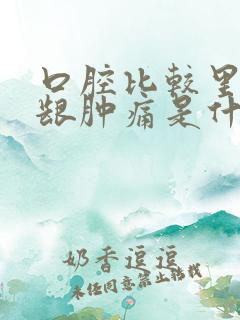 口腔比较里
龈肿痛是什
奶香逗逗
未经同意禁止转载